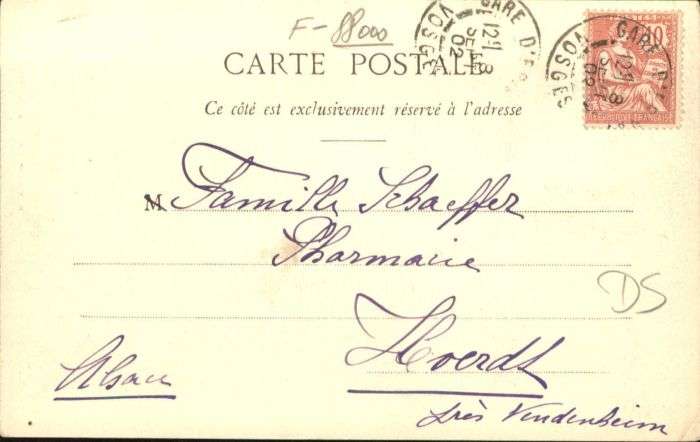 F-88000
CARTE POSTALE
Ce côté est exclusivement réservé à l'adresse
GARE D'
12 8
SEPT
02
VOSGES
GARE D'
12 8
02
VOSGES
10
REPUBLIQUE FRANÇAISE
M Famille Schaeffer
Pharmacie
DS
Hoerdt
Alsace
près Vendenheim